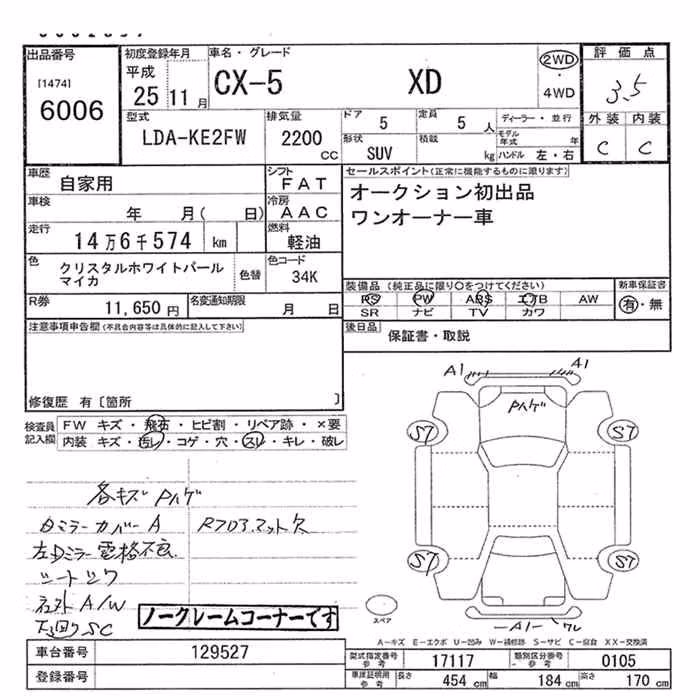 出品番号
[1474]
6006
初度登録年月
平成
25 11 月
車名・グレード
CX-5 XD
2WD
・
4WD
評価点
3.5
外装 内装
C C
型式
LDA-KE2FW
排気量
2200
cc
ドア
5
定員
5 人
ディーラー・並行
形状
SUV
積載
kg
モデル年式 年
ハンドル 左・右
車歴
自家用
シフト
FAT
車検
年 月( 日)
冷房
AAC
走行
14万6千574 km
燃料
軽油
色
クリスタルホワイトパール
マイカ
色替
色コード
34K
R券
11,650 円
名変通知期限
月 日
セールスポイント(正常に機能するものに限ります)
オークション初出品
ワンオーナー車
装備品(純正品に限り○をつけてください)
PS PW ABS エアB AW
SR ナビ TV カワ
新車保証書
有・無
後日品
保証書・取説
注意事項申告欄(不具合内容等は具体的に記入して下さい)
修復歴 有〔箇所 〕
検査員
記入欄
FW キズ・飛石・ヒビ割・リペア跡・×要
内装 キズ・汚レ・コゲ・穴・スレ・キレ・破レ
各キズPハゲ
ミラーカバーA
左Dミラー電格不良
R フロアマット欠
シートシワ
社外A/W
下回りSC
ノークレームコーナーです
A1 A1
Pハゲ
S7 S7
S7 S7
スペア
A1 ワレ
A-キズ E-エクボ U-凹み W-補修跡 S-サビ C-腐食 XX-交換済
車台番号
129527
登録番号
型式指定番号
参考
17117
類別区分番号
参考
0105
車庫証明用
参考
長さ
454 cm
幅
184 cm
高さ
170 cm